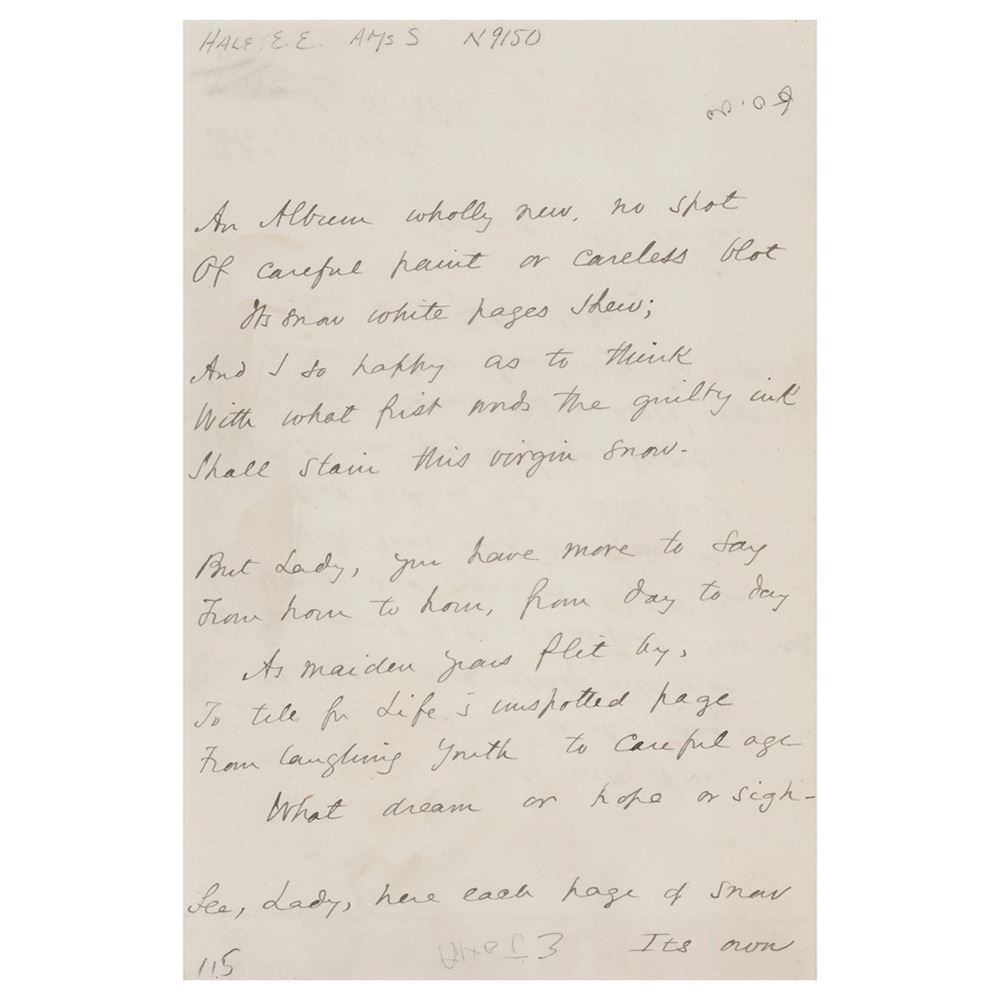 HALE, E. E. AMs S N9150
P.O.
An Album wholly new, no spot
Of careful paint or careless blot
Its snow white pages shew;
And I so happy as to think
With what first words the guilty ink
Shall stain this virgin snow.
But Lady, you have more to say
From hour to hour, from day to day
As maiden years flit by,
To tell for Life's unspotted page
From laughing Youth to careful age
What dream or hope or sigh—
See, Lady, here each page of snow
Its own
115